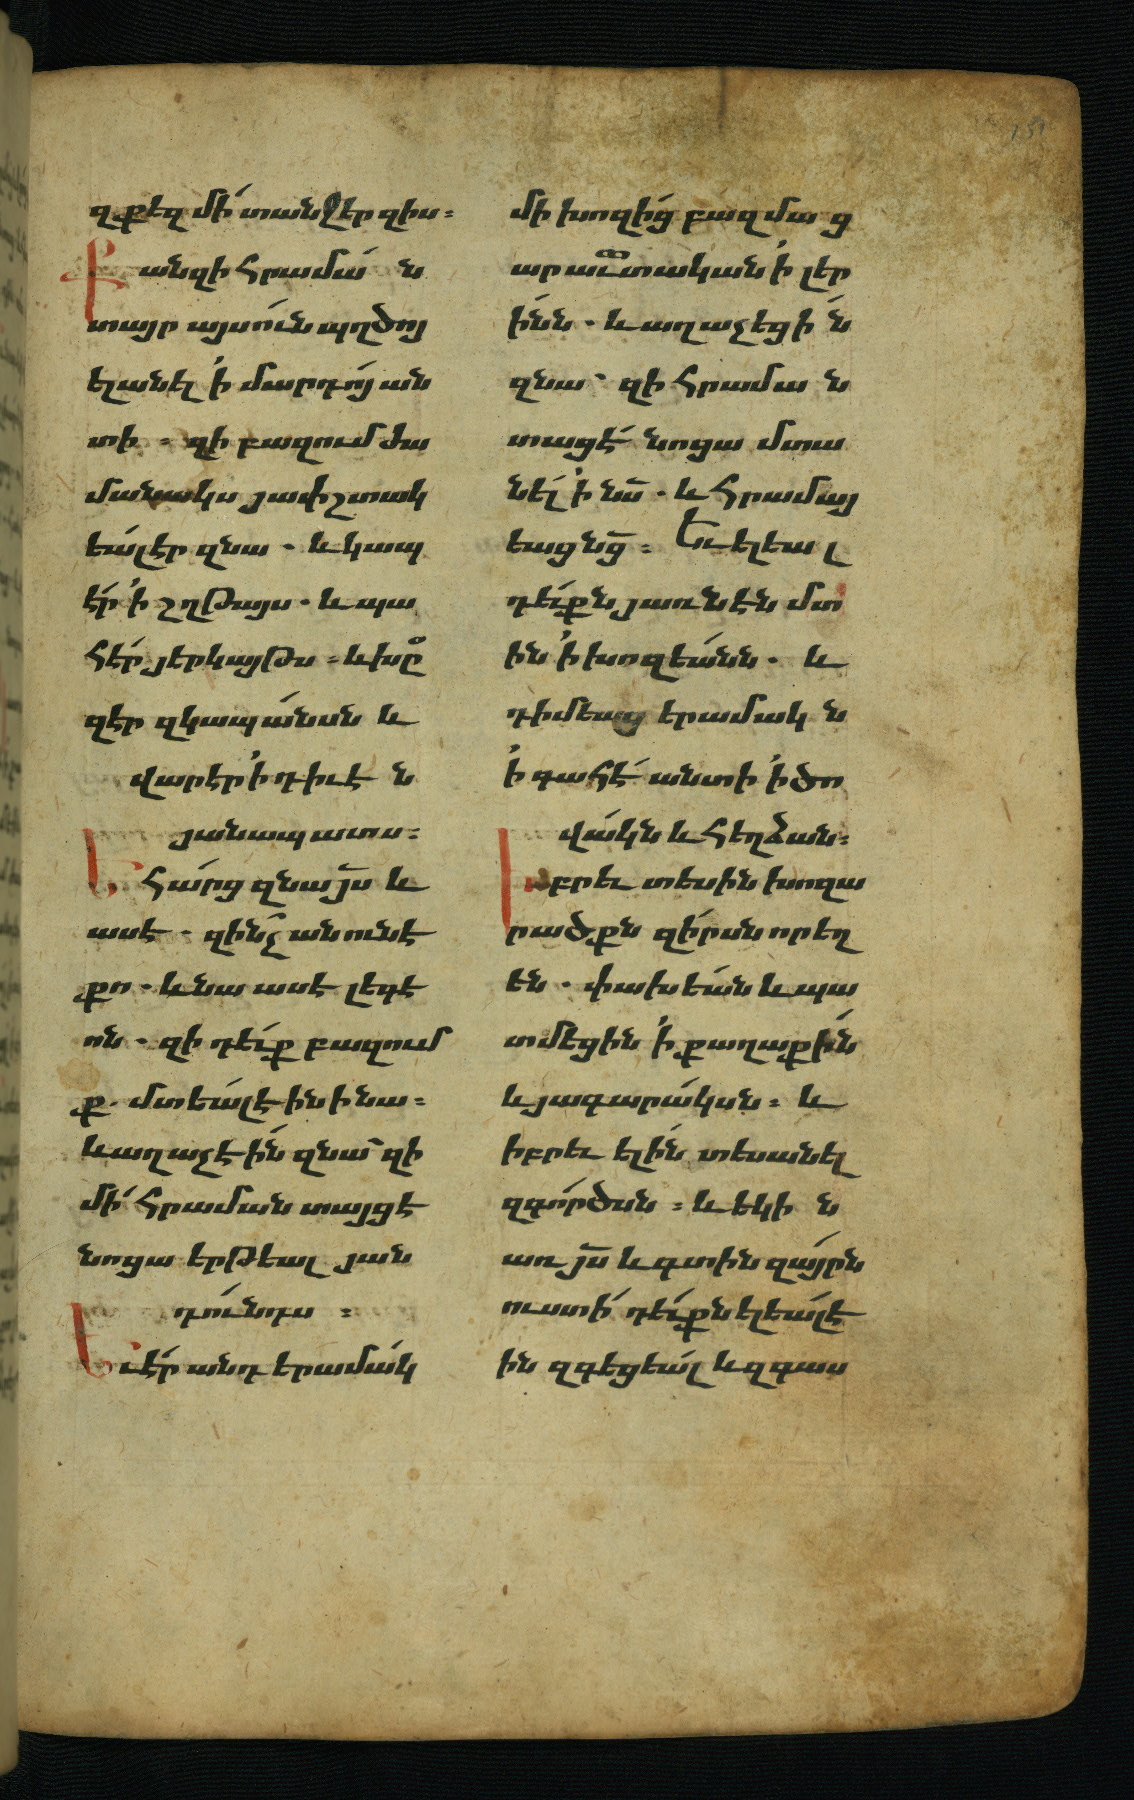 զքեզ մի՛ տանջեր զիս։
Քանզի հրամա՛ն
տայր այսուն պղծոյ
ելանել ՚ի մարդոյ ան
տի ։ զի բազում ժա
մանակս յափշտակ
եա՛լ էր զնա · և կապ
է՛ր ՚ի շղթայս · և պա
հէ՛ր յերկայթս ։ և խզը
զէր զկապա՛նսն և
վարէր ՚ի դիւէն
յանապատս։
Եհա՛րց զնա յս̄ և
ասէ · զի՞նչ անուն է
քո · և նա ասէ լեգէ
ոն · զի դե՛ւք բազում
ք. մտեա՛լ էին ի նա ։
և աղաչէի՛ն զնա՝ զի
մի՛ հրաման տայցէ
նոցա երթեալ յան
դո՛ւնդս ։
Եւ է՛ր անդ երամա՛կ
մի խոզի՛ց բազմաց
արաւտական ՚ի լեր
ի՛նն · և աղաչեցին
զնա՝ զի հրաման
տացէ՛ նոցա մտա
նե՛լ ՚ի նս̄ · և հրամայ
եաց նց̄ ։ Եւ ելեալ
դե՛ւքն յառնէն մտ
ին ՚ի խոզեա՛նն · և
դիմեաց երամակն
՚ի գահէ՛ անտի ՚ի ծո
վա՛կն և հեղձան։
Իբրեւ տեսին խոզա
րածքն զի՛րսն որ եղ
են · փախեա՛ն և պա
տմէցին ՚ի քաղաքի՛ն
և յագարա՛կսն ։ և
իբրեւ ելի՛ն տեսանել
զգո՛րծսն ։ և եկին
առ յս̄ և գտին զա՛յրն
ուստի՛ դե՛ւքն ելեա՛լ է
ին զգեցեա՛լ և զգաս